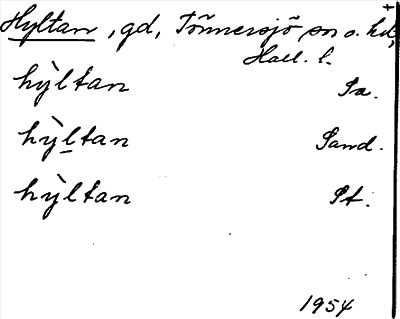 Hyltan, gd, Tönnersjö sn o. hd,
Hall. l.
hỳltan Sa.
hỳḻtan Sand.
hỳltan St.
1954